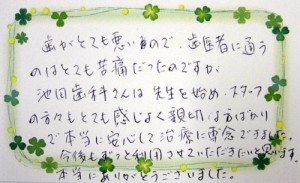 歯がとても悪いので、歯医者に通う
のはとても苦痛だったのですが
池田歯科さんは先生を始め、スタッフ
の方々もとても感じよく親切な方ばかり
で本当に安心して治療に専念できました。
今後もずっと利用させていただきたいと思います。
本当にありがとうございました。